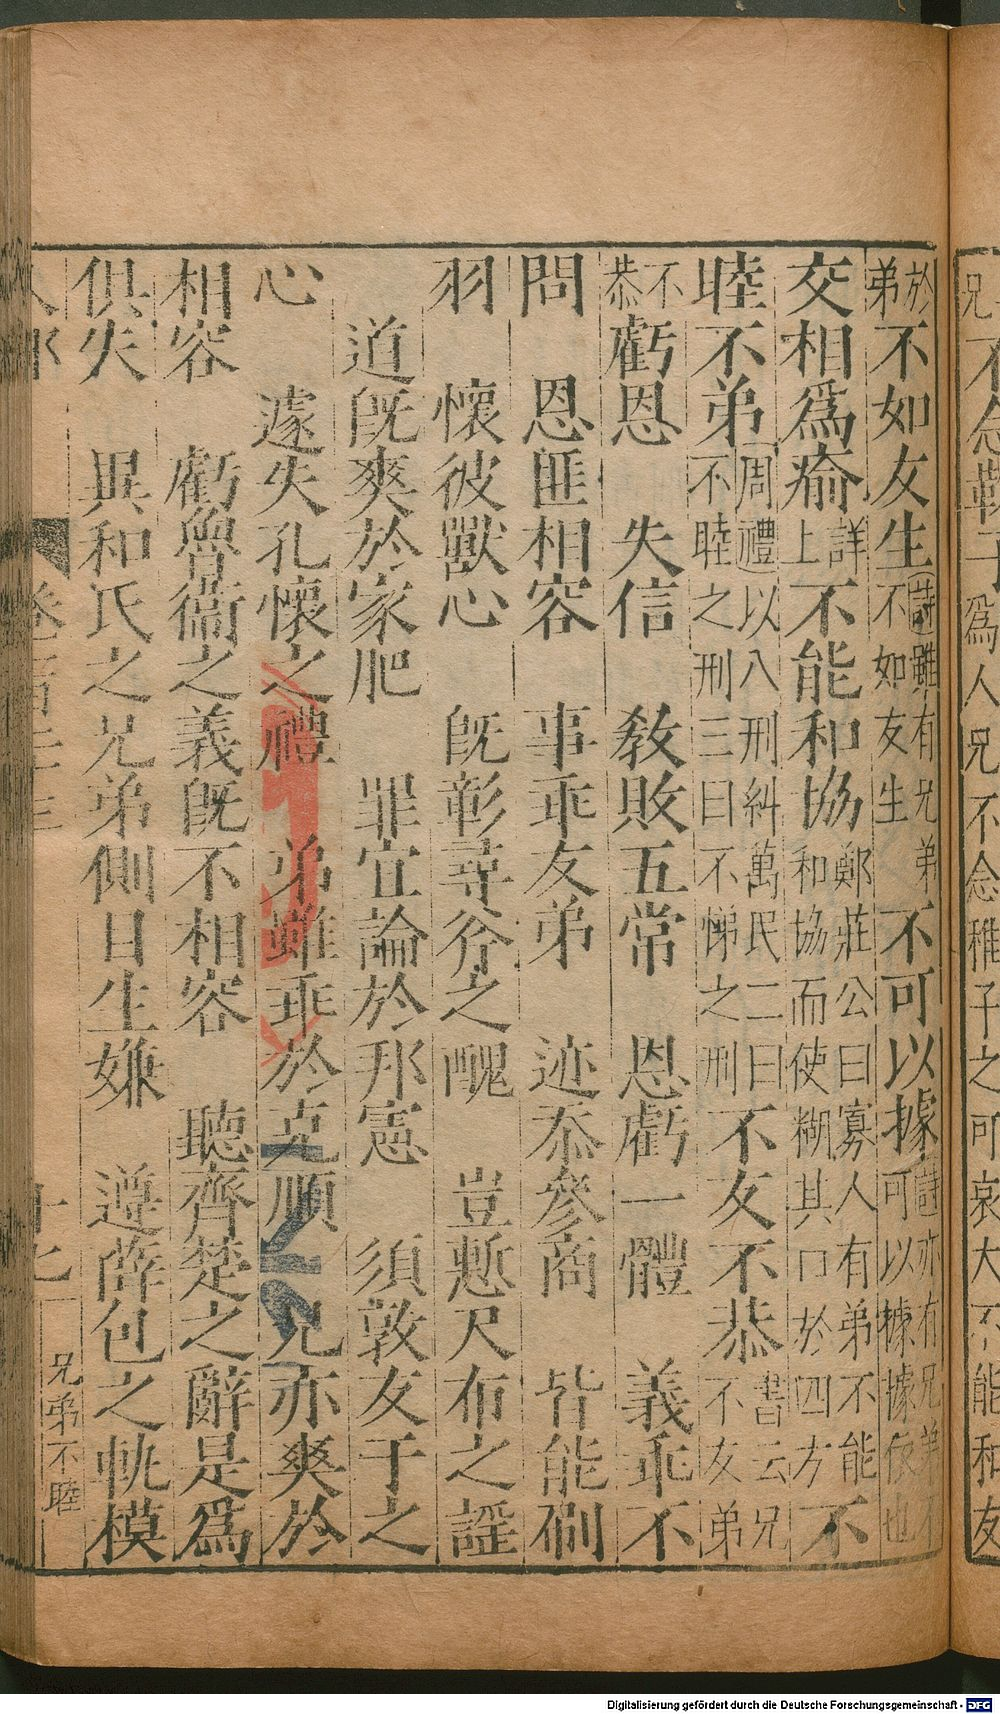 於弟不如友生詩雖有兄弟不如友生不可以據詩亦有兄弟可以據據依也
交相為瘉詳上不能和協鄭莊公曰寡人有弟不能和協而使糊其口於四方不
睦不弟周禮以八刑糾萬民二曰不睦之刑三曰不悌之刑不友不恭書云兄不友弟
不恭虧恩 失信 敎敗五常 恩虧一體 義乖不
問 恩匪相容 事乖友弟 迹忝參商 皆能刎
羽 懷彼獸心 旣彰尋斧之醜 豈慙尺布之謡
道旣爽於家肥 罪宜論於邦憲 須敦友于之
心 遽失孔懷之禮 弟雖乖於克順 兄亦爽於
相容 虧魯衞之義旣不相容 聽齊楚之辭是為
俱失 異和氏之兄弟側目生嫌 遵薛包之軌模
十七 兄弟不睦
兄不念鞠子為人兄不念稚子之可哀大不能和友
Digitalisierung gefördert durch die Deutsche Forschungsgemeinschaft - DFG